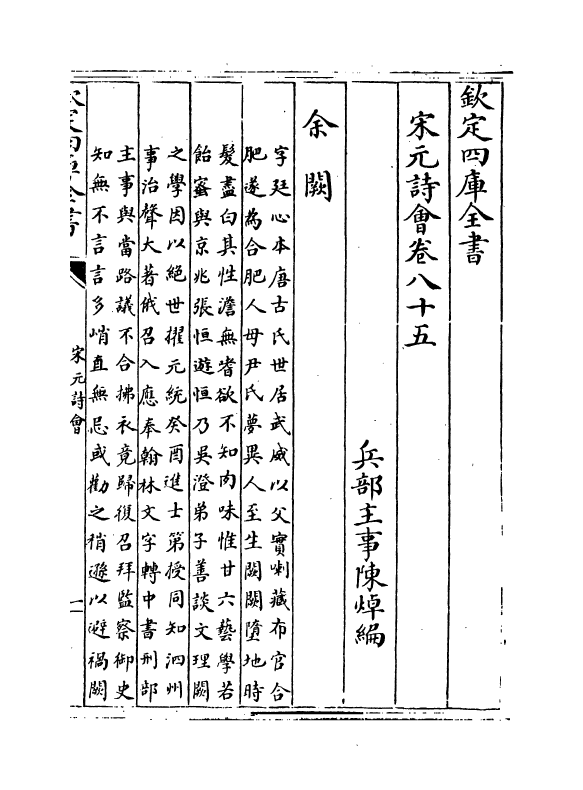 欽定四庫全書
宋元詩會卷八十五
兵部主事陳焯編
余闕
字廷心本唐古氏世居武威以父實喇藏布官合
肥遂為合肥人母尹氏夢異人至生闕闕墮地時
髮盡白其性澹無嗜欲不知肉味惟甘六藝學若
飴蜜與京兆張恒遊恒乃吳澄弟子善談文理闕
之學因以絕世擢元統癸酉進士第授同知泗州
事治聲大著俄召入應奉翰林文字轉中書刑部
主事與當路議不合拂衣竟歸復召拜監察御史
知無不言言多峭直無忌或勸之稍遜以避禍闕
欽定四庫全書
宋元詩會
一